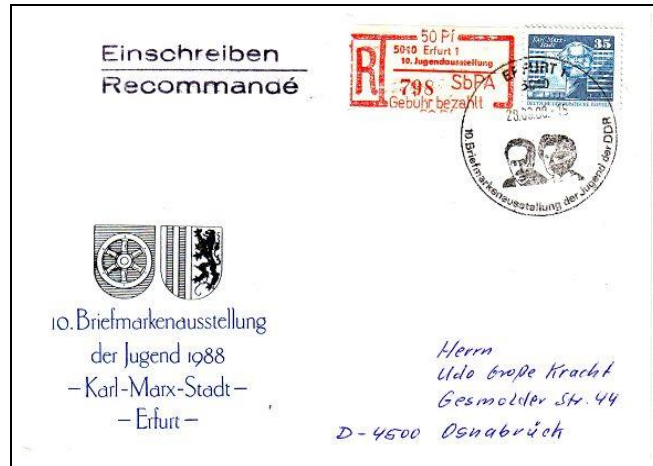 Einschreiben
Recommandé
50 Pf
5010 Erfurt 1
10. Jugendausstellung
R
798
SbPA
Gebühr bezahlt
Karl-Marx-Stadt
35
DEUTSCHE DEMOKRATISCHE REPUBLIK
ERFURT
10. Briefmarkenausstellung der Jugend der DDR
10. Briefmarkenausstellung
der Jugend 1988
– Karl-Marx-Stadt –
– Erfurt –
Herrn
Udo Große Kracht
Gesmolder Str. 44
D-4500 Osnabrück